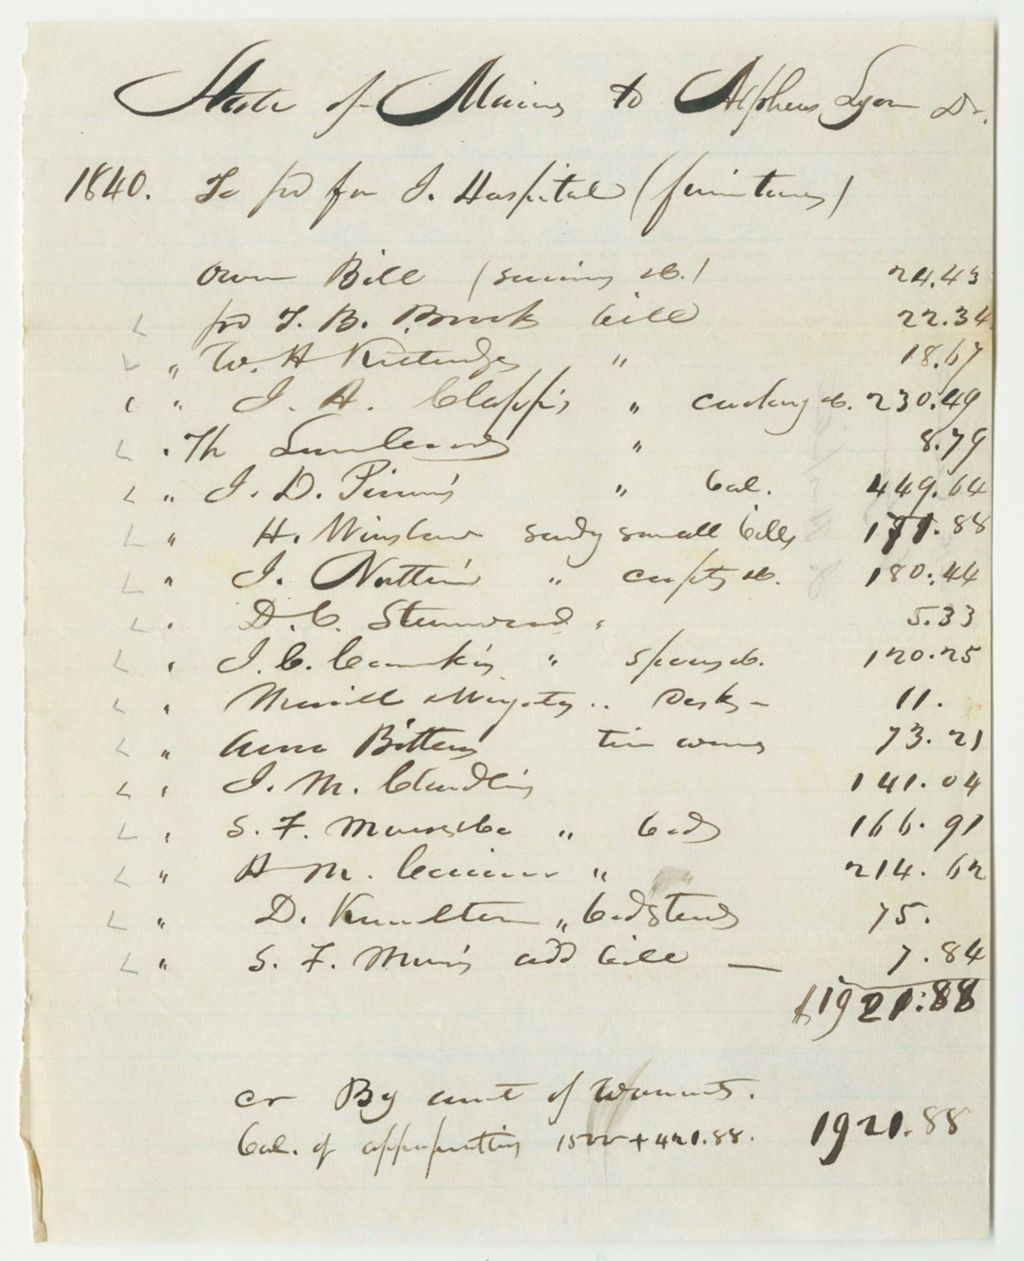 State of Maine to Alpheus Lyon Dr.
1840. To pd for I. Hospital (furniture)
own Bill ( &c.) 24.43
pd T. B. Brook bill 22.34
" W. H Kittredge " 18.67
" J. A. Clapp's " &c. 230.49
" Th 8.79
" J. D. Pierce's " bal. 449.64
" H. Winslow sundy small bills 171.88
" J. Nutting " carpts &c. 180.44
" D. C. Stanwood " 5.33
" J. C. " spoons &c. 120.25
" Merrill & Wingate " Desk – 11.
" Bitteus tin ware 73.21
" J. M. 141.04
" S. F. " beds 166.91
" H M. " 214.62
" D. Knowlton " bedsteads 75.
" S. F. add bill — 7.84
$1921.88
cr By amt of Warrants.
bal. of appropriation 1500 + 421.88. 1921.88